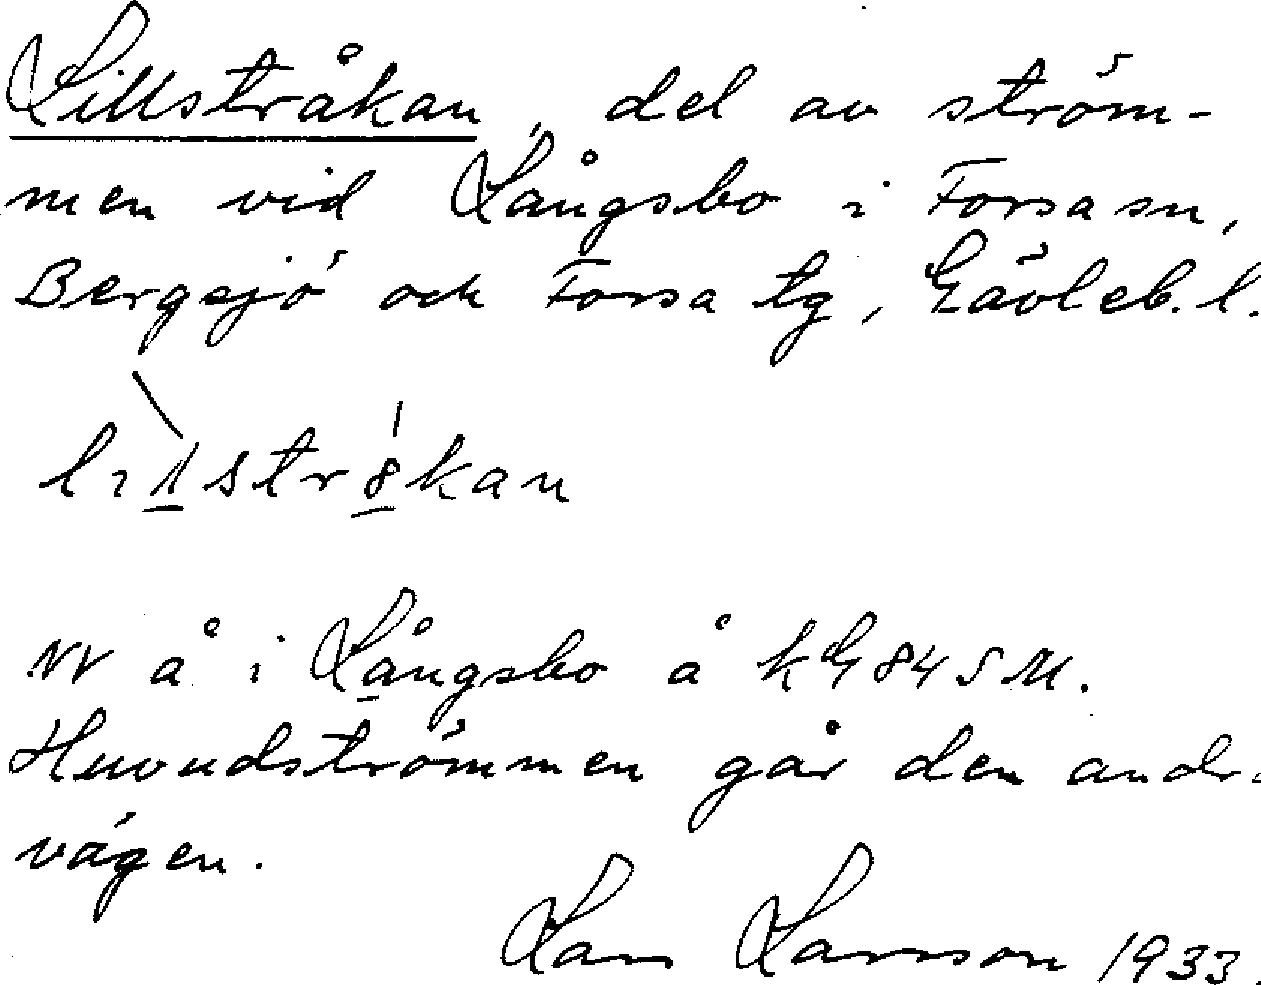 Lillstråkan, del av ström-
men vid Långsbo i Forsa sn,
Bergsjö och Forsa tg, Gävleb. l.
Nr å i Långsbo å kG 845 M.
Huvudströmmen går den andr.
vägen.
Lars Larsson 1933.